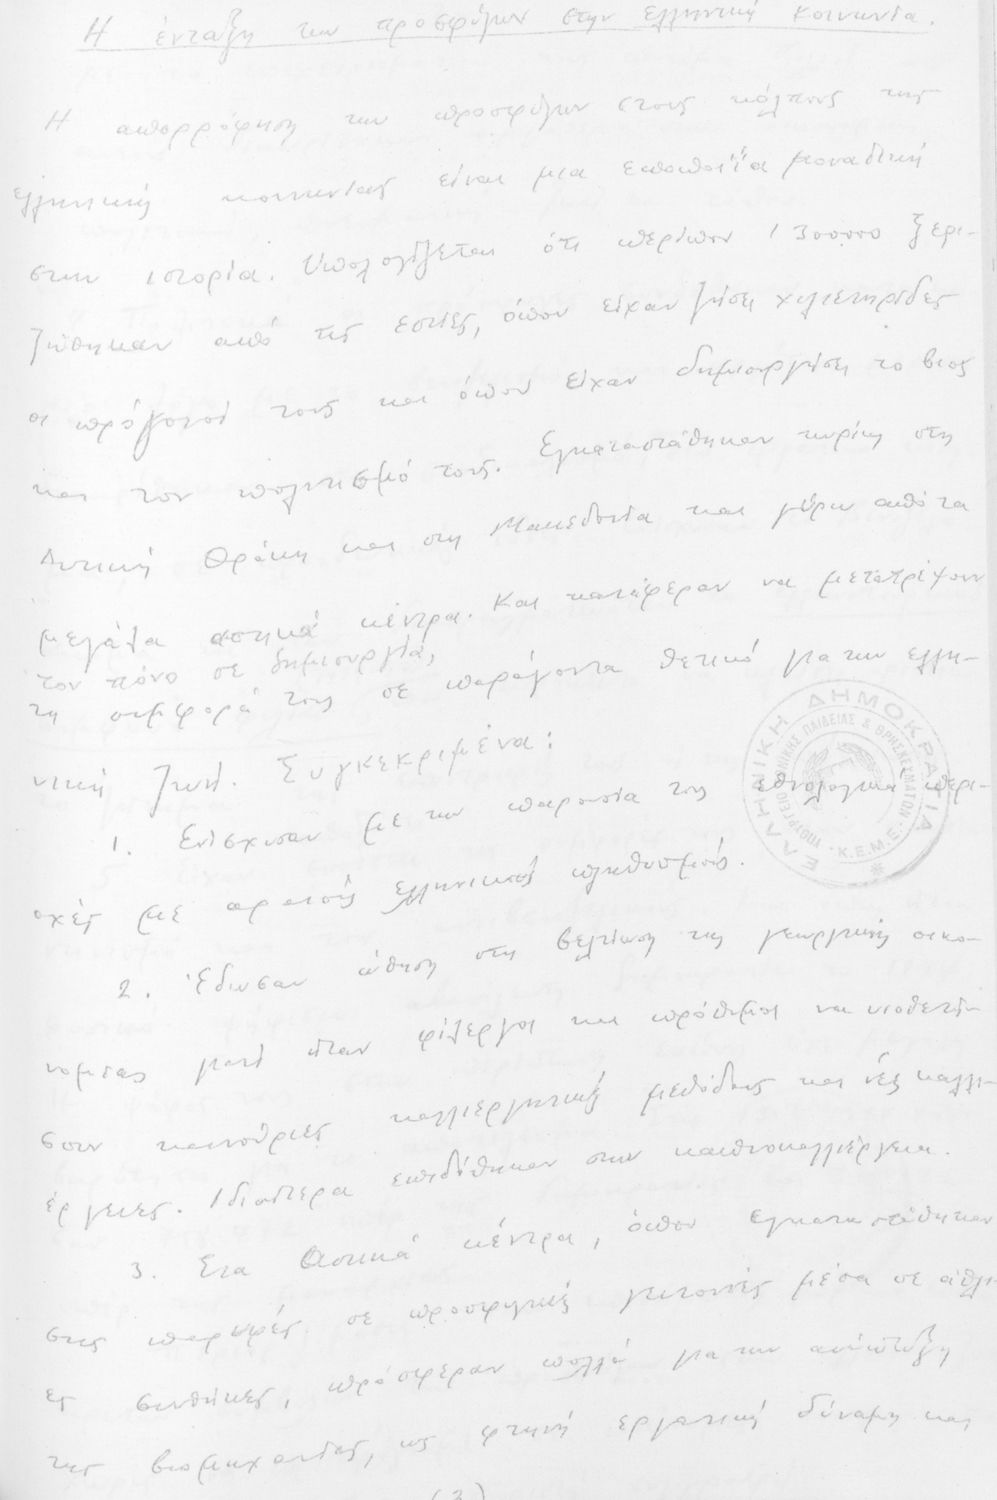 Η ένταξη των προσφύγων στην ελληνική κοινωνία.
Η απορρόφηση των προσφύγων στους κόλπους της
ελληνικής κοινωνίας είναι μια εποποιΐα μοναδική
στην ιστορία. Υπολογίζεται ότι περίπου 1300000 ξερι-
ζώθηκαν από τις εστίες, όπου είχαν ζήσει χιλιετηρίδες
οι πρόγονοί τους και όπου είχαν δημιουργήσει το βιος
και τον πολιτισμό τους. Εγκαταστάθηκαν κυρίως στη
Δυτική Θράκη και στη Μακεδονία και γύρω από τα
μεγάλα αστικά κέντρα. Και κατάφεραν να μετατρέψουν
τον πόνο σε δημιουργία,
τη συμφορά τους σε παράγοντα θετικό για την ελλη-
νική ζωή. Συγκεκριμένα:
1. Ενίσχυσαν με την παρουσία τους εθνολογικά περι-
οχές με αραιούς ελληνικούς πληθυσμούς.
2. Έδωσαν ώθηση στη βελτίωση της γεωργικής οικο-
νομίας γιατί ήταν φίλεργοι και πρόθυμοι να υιοθετή-
σουν καινούριες καλλιεργητικές μεθόδους και νέες καλλι-
έργειες. Ιδιαίτερα επιδόθηκαν στην καπνοκαλλιέργεια.
3. Στα αστικά κέντρα, όπου εγκαταστάθηκαν
στις παρυφές σε προσφυγικές γειτονιές μέσα σε άθλι-
ες συνθήκες, πρόσφεραν πολλά για την ανάπτυξη
της βιομηχανίας, ως φτηνή εργατική δύναμη και
(3)
ΕΛΛΗΝΙΚΗ ΔΗΜΟΚΡΑΤΙΑ
ΥΠΟΥΡΓΕΙΟ ΕΘΝΙΚΗΣ ΠΑΙΔΕΙΑΣ & ΘΡΗΣΚΕΥΜΑΤΩΝ
Κ.Ε.Μ.Ε.